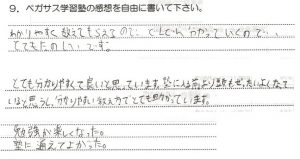 9. ペガサス学習塾の感想を自由に書いて下さい。
わかりやすく教えてもらえるので、どんどん分かっていくので、
とてもたのしいです。
とても分かりやすくて良いと思っています。塾に入る前より
いると思うし、分かりやすい教え方でとても助かっています。
勉強が楽しくなった。
塾に通えてよかった。